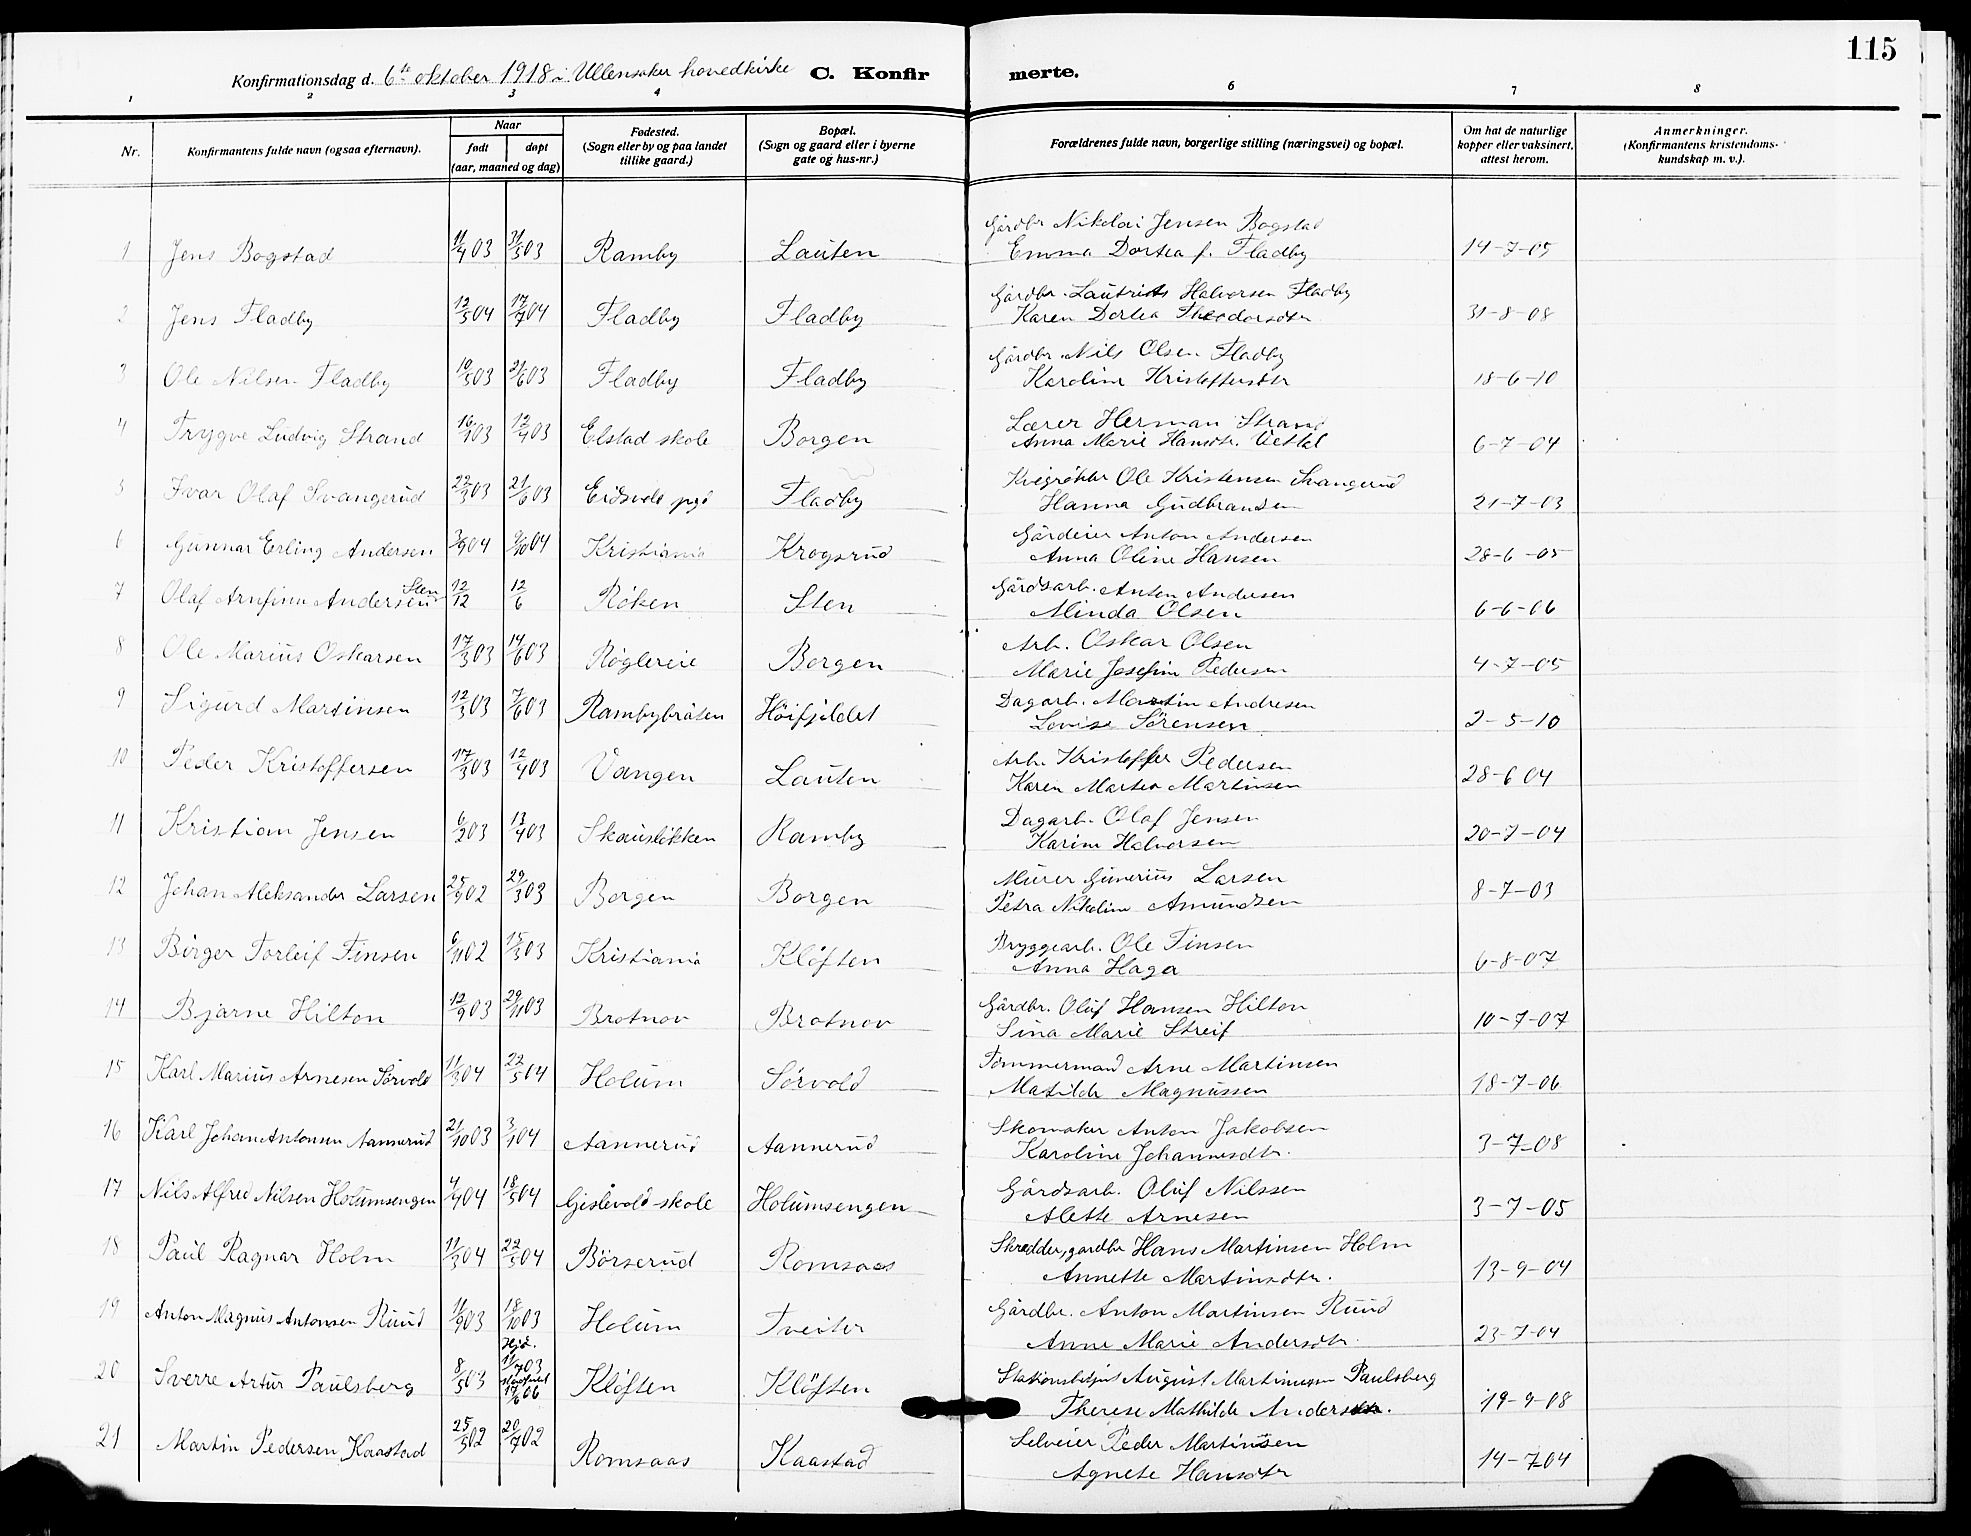 115
Konfirmationsdag d. 6te oktober 1918 i Ullensaker hovedkirke C. Konfirmerte.
1 2 3 4 6 7 8
Nr. Konfirmantens fulde navn (ogsaa efternavn). Naar født døpt (aar, maaned og dag) Fødested. (Sogn eller by og paa landet tillike gaard.) Bopæl. (Sogn og gaard eller i byerne gate og hus-nr.) Forældrenes fulde navn, borgerlige stilling (næringsvei) og bopæl. Om hat de naturlige kopper eller vaksinert, attest herom. Anmerkninger. (Konfirmantens kristendomskundskap m. v.).
Gårdbr Nikolai Jensen Bogstad
1 Jens Bogstad 11/4 03 31/5 03 Ramby Lauten Emma Dortea f. Fladby 14-7-05
Gårdbr. Lautrits Halvorsen Fladby
2 Jens Fladby 12/5 04 17/7 04 Fladby Fladby Karen Dortea Theodorsdtr 31-8-08
Gårdbr. Nils Olsen Fladby
3 Ole Nilsen Fladby 10/5 03 21/6 03 Fladby Fladby Karoline Kristoffersdtr 18-6-10
Lærer Herman Strand
4 Trygve Ludvig Strand 16/1 03 12/4 03 Elstad skole Borgen Anna Marie Hansdtr. 6-7-04
Ole Kristensen Svangerud
5 Ivar Olaf Svangerud 22/3 03 21/6 03 Eidsvold pgd Fladby Hanna Gudbrandsen 21-7-03
Gårdeier Anton Andersen
6 Gunnar Erling Andersen 2/9 04 9/10 04 Kristiania Krogsrud Anna Oline Hansen 28-6-05
Gårdsarb. Anton Andersen
7 Olaf Arnfinn Andersen Sten 12/12 12/6 Røken Sten Minda Olsen 6-6-06
Arb. Oskar Olsen
8 Ole Marius Oskarsen 17/3 03 14/6 03 Røglereie Borgen Marie Josefine Pedersen 4-7-05
Dagarb. Martin Andresen
9 Sigurd Martinsen 12/3 03 7/6 03 Rambybråten Höifjeldet Lovise Sörensen 2-5-10
Arb. Kristoffer Pedersen
10 Peder Kristoffersen 17/3 03 12/4 03 Vangen Lauten Karen Martea Martinsen 28-6 04
Dagarb. Olaf Jensen
11 Kristian Jensen 6/2 03 13/4 03 Skauslökken Ramby Karine Halvorsen 20-7-04
Murer Gunerius Larsen
12 Johan Aleksander Larsen 25/9 02 29/3 03 Borgen Borgen Petra Nikoline Amundsen 8-7-03
Bryggearb. Ole Finsen
13 Birger Torleif Finsen 6/11 02 15/3 03 Kristiania Klöften Anna Haga 6-8-07
Gårdbr. Oluf Hansen Hilton
14 Bjarne Hilton 12/9 03 29/11 03 Brotnov Brotnov Sina Marie Streif 10-7-07
Tømmermand Arne Martinsen
15 Karl Marius Arnesen Sörvold 11/3 04 22/5 04 Holum Sörvold Matilde Magnussen 18-7-06
Skomaker Anton Jakobsen
16 Karl Johan Antonsen Aannerud 21/10 03 3/1 04 Aannerud Aannerud Karoline Johannesdtr. 3-7-08
Gårdsarb. Oluf Nilssen
17 Nils Alfred Nilsen Holumsengen 4/4 04 18/5 04 Gislevold skole Holumsengen Alette Arnesen 3-7-05
Skredder, gardbr Hans Martinsen Holm
18 Paul Ragnar Holm 11/3 04 22/5 04 Börserud Romsaas Annette Martinsdtr. 13-9-04
Gårdbr. Anton Martinsen Ruud
19 Anton Magnus Antonsen Ruud 11/9 03 18/10 03 Holum Tveiter Anne Marie Andersdtr. 23-7-04
Hjd.
11/7 03 August Martinusen Paulsberg
20 Sverre Artur Paulsberg 8/5 03 17/6 06 Klöften Klöften Therese Mathilde Andersdtr. 19-9-08
Selveier Peder Martinsen
21 Martin Pedersen Kaastad 25/5 02 20/7 02 Romsaas Kaastad Agnete Hansdtr 14-7-04